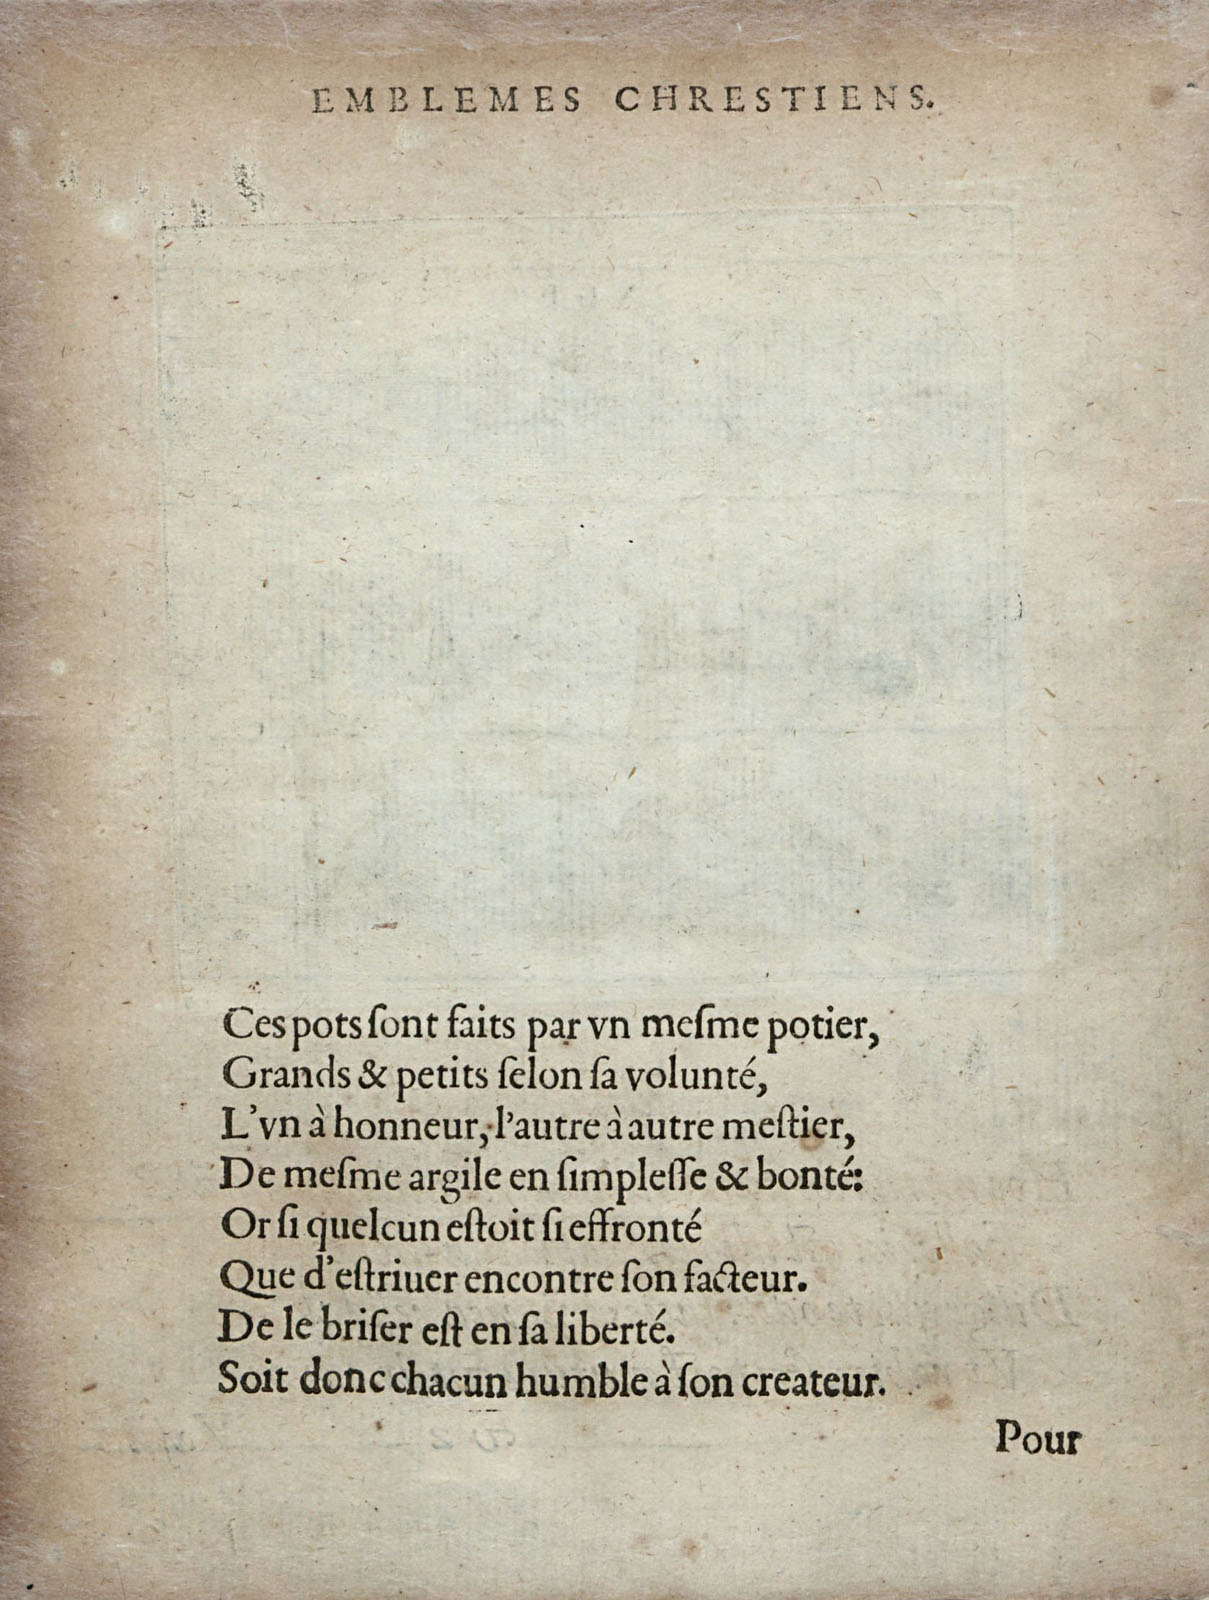 EMBLEMES CHRESTIENS.
Ces pots ſont faits par vn meſme potier,
Grands & petits ſelon ſa volunté,
L'vn à honneur, l'autre à autre meſtier,
De meſme argile en ſimpleſſe & bonté:
Or ſi quelcun eſtoit ſi effronté
Que d'eſtriuer encontre ſon facteur.
De le briſer eſt en ſa liberté.
Soit donc chacun humble à ſon createur.
Pour